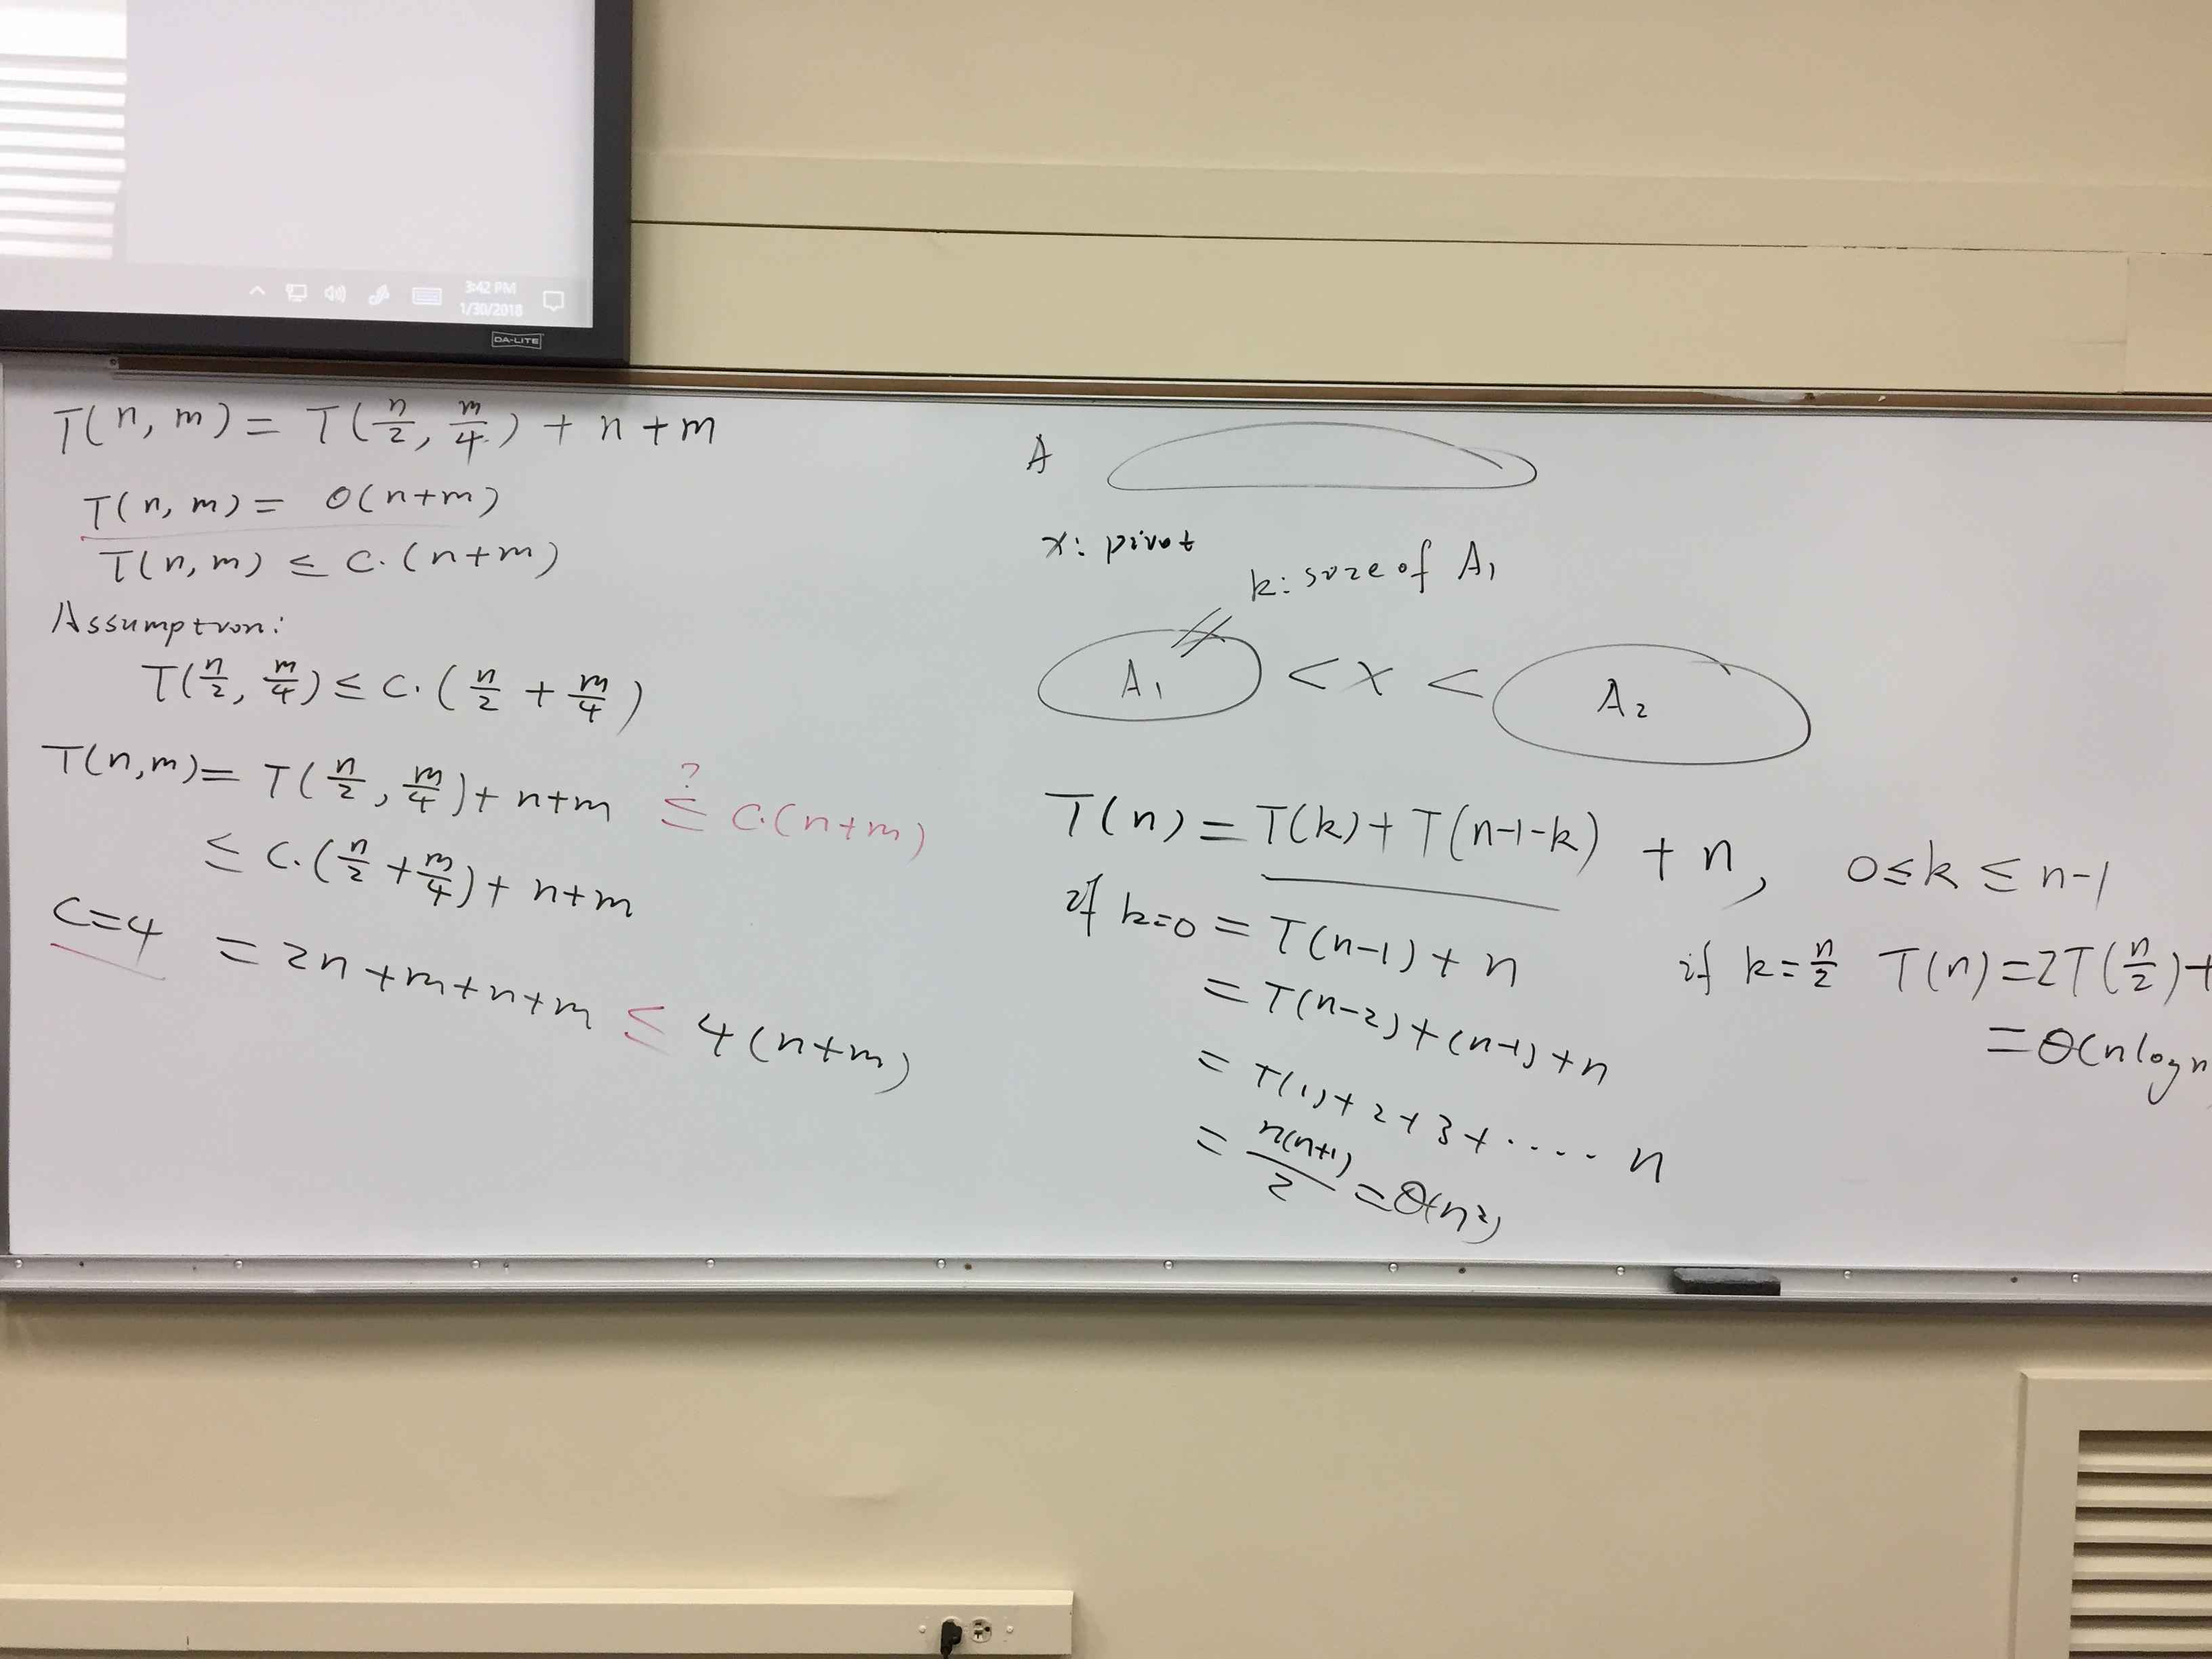 3:42 PM
1/30/2018
DA-LITE
T(n, m) = T(n/2, m/4) + n + m
T(n, m) = O(n+m)
T(n, m) ≤ c.(n+m)
Assumption:
T(n/2, m/4) ≤ c.(n/2 + m/4)
T(n,m) = T(n/2, m/4) + n+m ≤? c.(n+m)
≤ c.(n/2 + m/4) + n+m
c=4 = 2n + m + n + m ≤ 4(n+m)
A
x: pivot
k: size of A₁
A₁ < x < A₂
T(n) = T(k) + T(n-1-k) + n, 0 ≤ k ≤ n-1
if k=0 = T(n-1) + n
= T(n-2) + (n-1) + n
= T(1) + 2 + 3 + ···· n
= n(n+1)/2 = Θ(n²)
if k = n/2 T(n) = 2T(n/2) +
= Θ(n log n